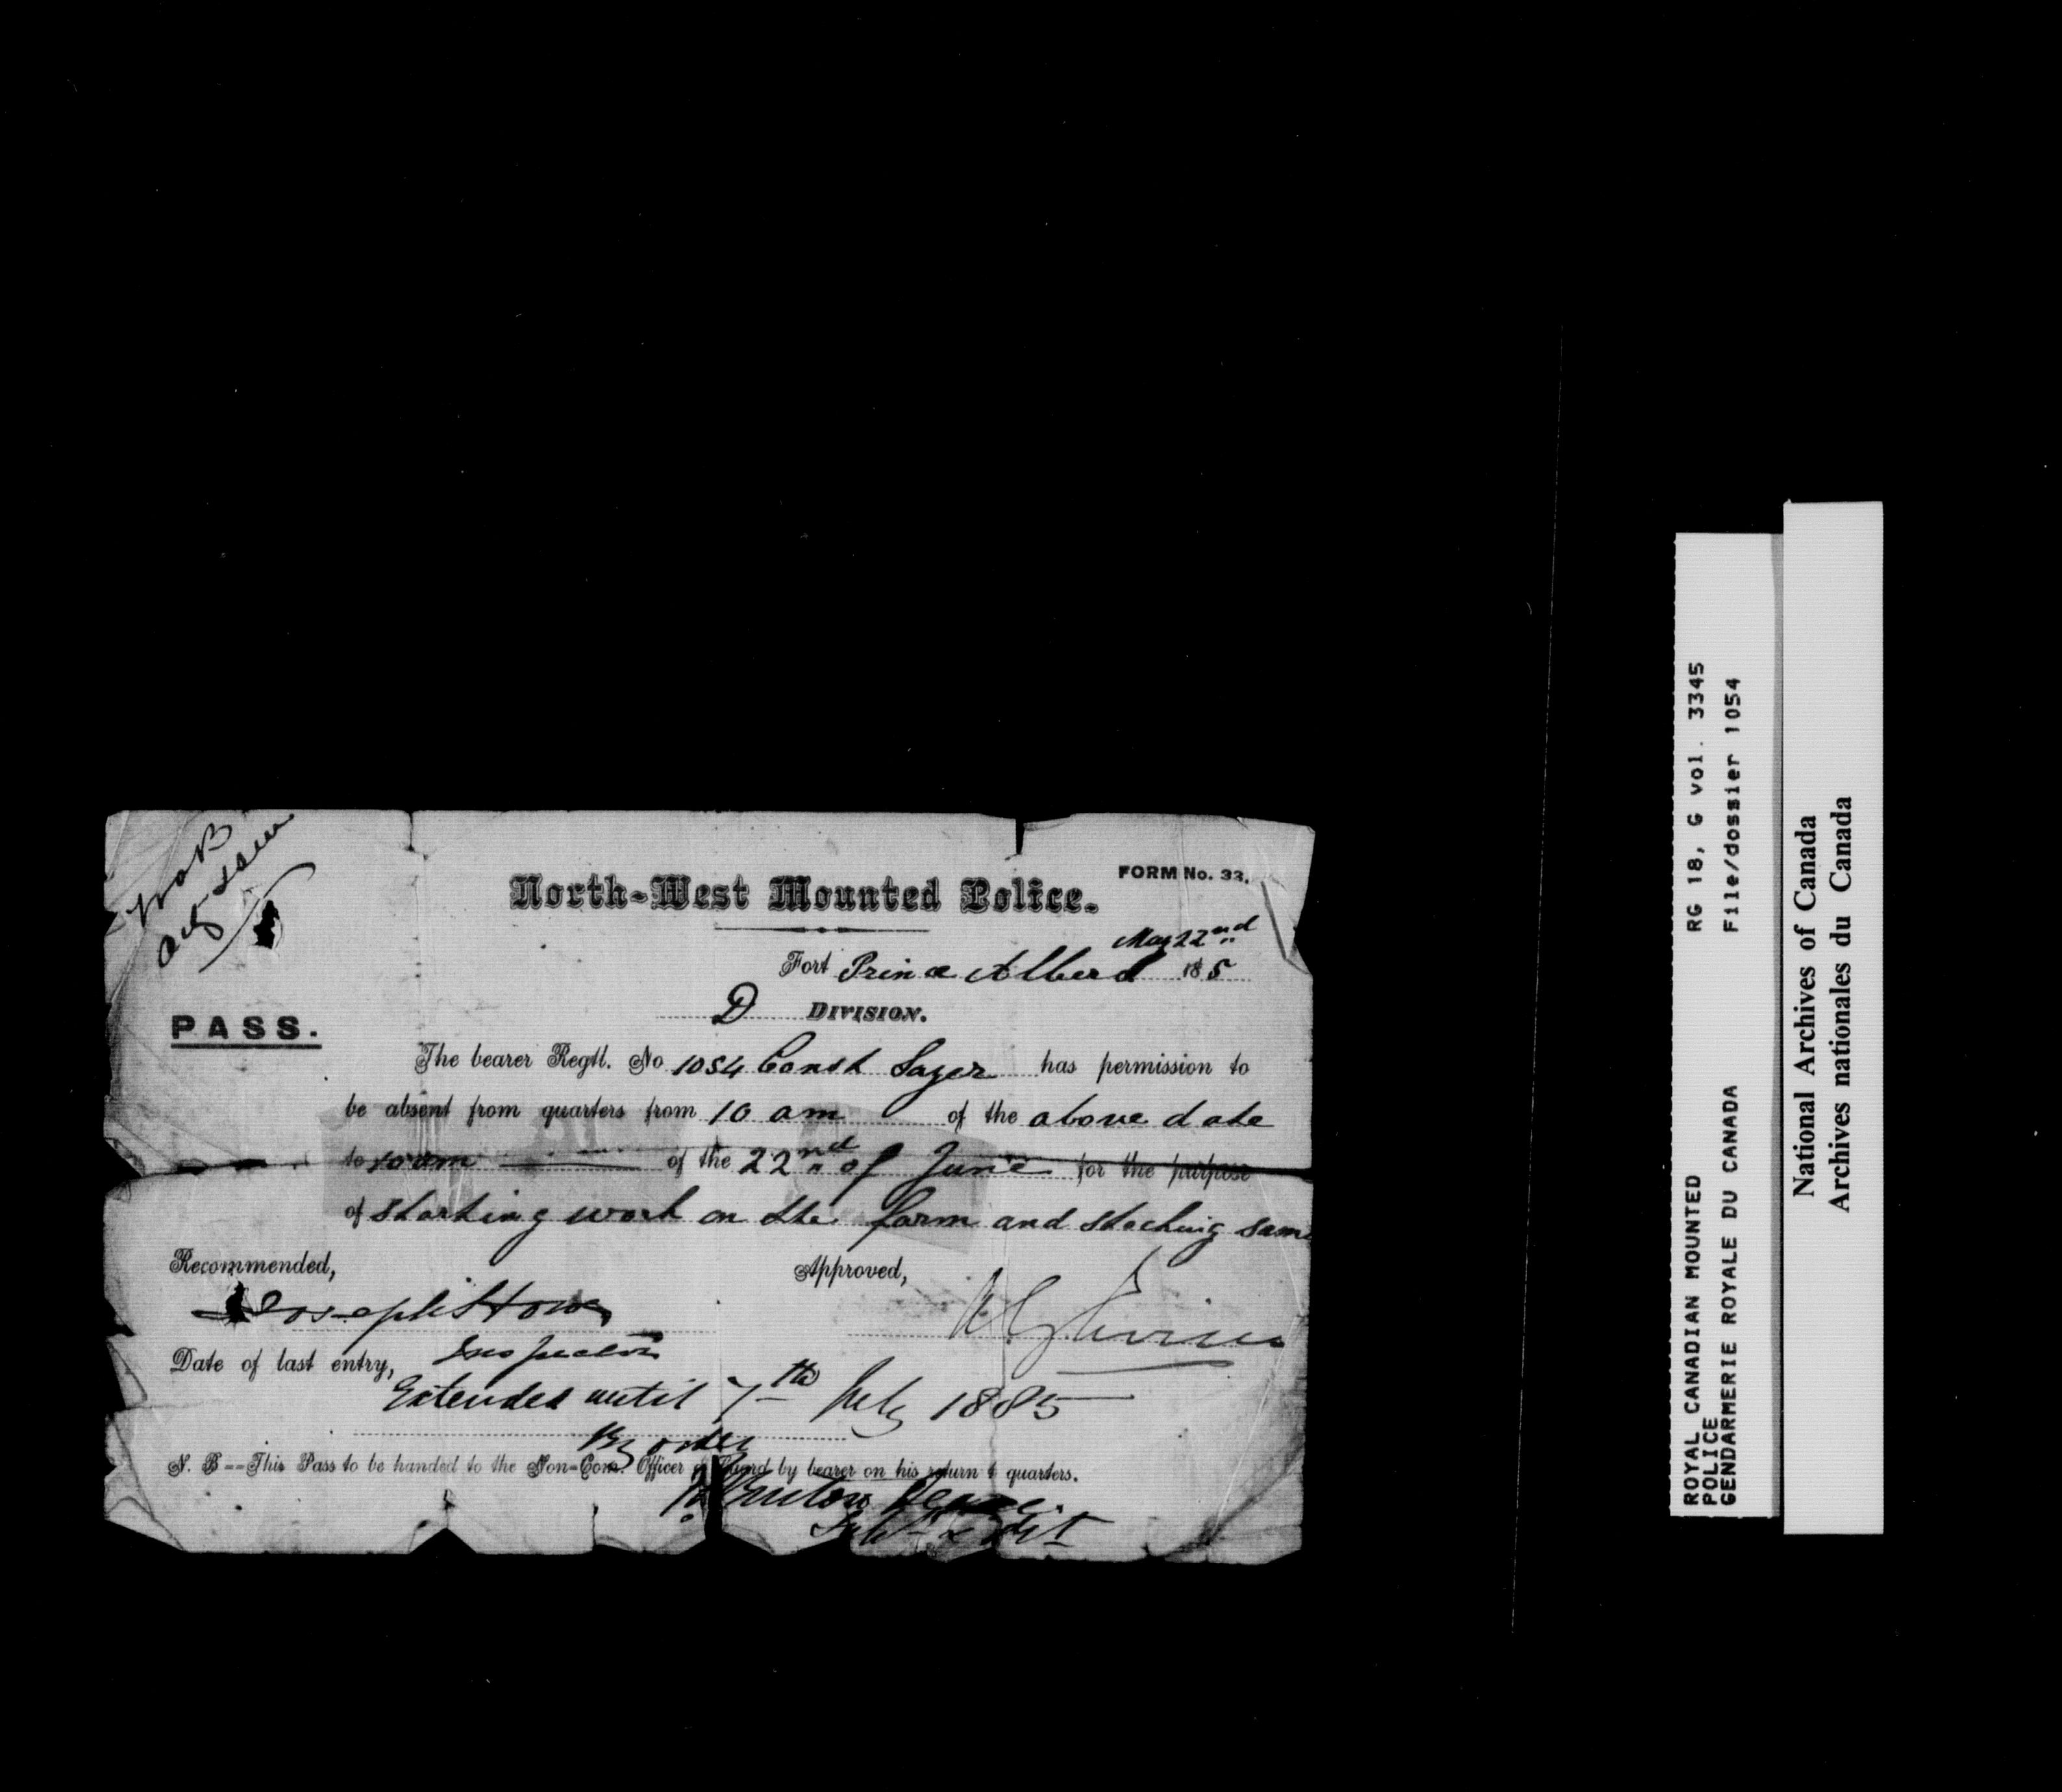 FORM No. 33.
North-West Mounted Police.
May 22nd
Fort Prince Albert 185
D DIVISION.
PASS.
The bearer Regtl. No 1054 Const Sayer has permission to
be absent from quarters from 10 am of the above date
to 10 am of the 22nd of June for the purpose
of starting work on the farm and stacking same
Recommended,
Approved,
Joseph Howe
Inspector
Date of last entry,
Extended until 7th July 1885
By order
N. B--This Pass to be handed to the Non-Com. Officer of Guard by bearer on his return to quarters.
R Burton Deane
Supt & Adjt
ROYAL CANADIAN MOUNTED RG 18, G vol. 3345
POLICE
GENDARMERIE ROYALE DU CANADA File/dossier 1054
National Archives of Canada
Archives nationales du Canada